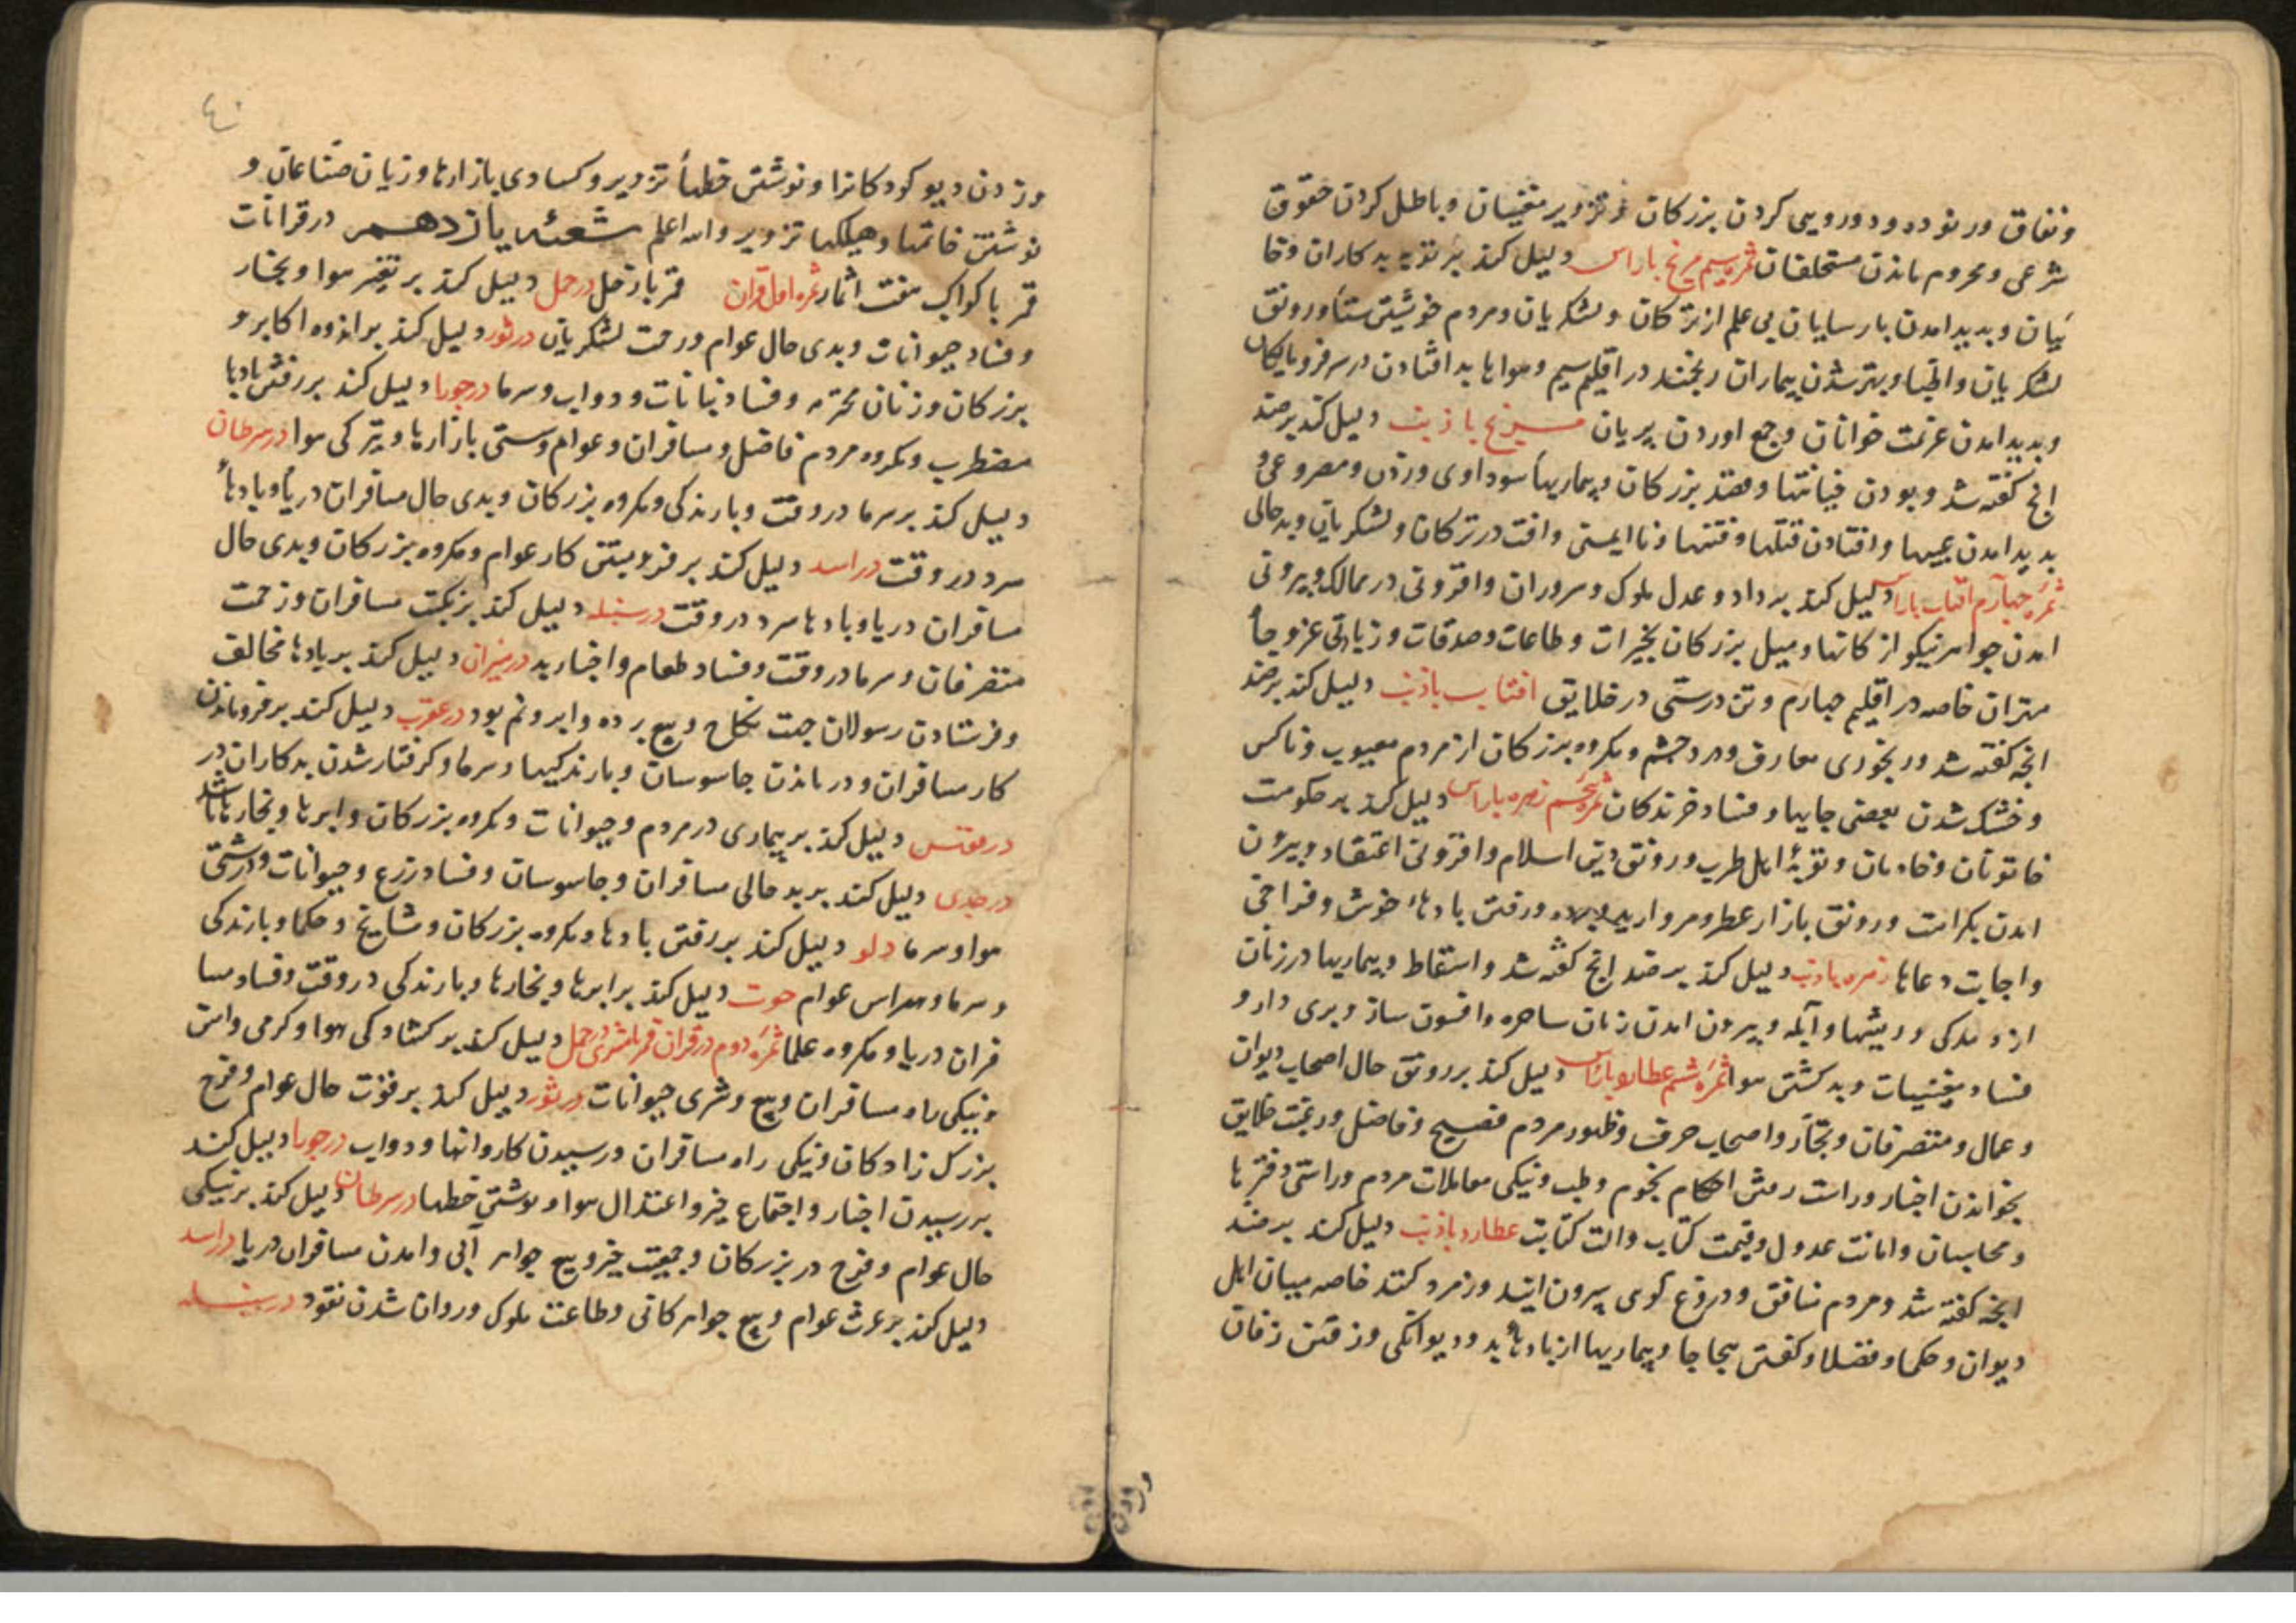 ونفاق ورنوده ودورویی کردن بزرکان وتزویر مفتیان وباطل کردن حقوق
شرعی ومحروم ماندن مستحلفان ثمره سیم مریخ باراس دلیل کند بر توبه بدکاران وخا
ییان وبدید امدن پارسایان بی علم از ترکان ولشکریان ومردم خویشتن ستا ورونق
لشکریان واطبا وبهتر شدن بیماران ریخند در اقلیم سیم وهواها بد افتادن در سر فرو
وبدید امدن عزیمت خوانان وجمع اوردن پریان مریخ باذنب دلیل کند بر ضد
انچ کفته شد وبودن خیانتها وقصد بزرکان وبیماریهاء سوداوی وزدن ومصروعی و
بدید امدن عیبها وافتادن قتلها وفتنها ونا ایمنی وافت در ترکان ولشکریان وبدحالی
ثمره چهارم افتاب باراس دلیل کند بر داد وعدل ملوک وسروران وافزونی در ممالک وبیرونی
امدن جواهر نیکو از کانها ومیل بزرکان بخیرات وطاعات وصدقات وزیادتی عز وجاه
مهتران خاصه در اقلیم چهارم وتن درستی در خلایق افتاب باذنب دلیل کند بر ضد
انچه کفته شد ورنجوری معارف ودرد چشم ومکروه بزرکان از مردم معیوب وناکس
وخشک شدن بعضی جایها وفساد خزندکان ثمره پنجم زهره باراس دلیل کند بر حکومت
خاتونان وخادمان وتوبهٔ اهل طرب ورونق دین اسلام وافزونی اعتقاد وبیرون
امدن بکرامت ورونق بازار عطر ومروارید ورفتن بادهاء خوش وفراخی
واجابت دعاها زهره باذنب دلیل کند بر ضد انچ کفته شد واسقاط وبیماریها در زنان
از ومدکی وریشها وآبله وبیرون امدن زنان ساحره وافسون ساز وبری دار و
فساد مغنیات وبد کشتن هوا ثمره ششم عطارد باراس دلیل کند بر رونق حال اصحاب دیوان
وعمال ومتصرفان وتجار واصحاب حرف وظهور مردم فصیح وفاضل ورغبت خلایق
بخواندن اخبار وراست رفتن احکام نجوم وطب ونیکی معاملات مردم وراستی دفترها
ومحاسبان وامانت عدول وقیمت کتاب والت کتابت عطارد باذنب دلیل کند بر ضد
انچه کفته شد ومردم منافق ودروغ کوی بیرون ایند ورمرد کنند خاصه میان اهل
دیوان وحکما وفضلا وکفتن هجاها وبیماریها از بادهاء بد ودیوانکی ورفتن زفان
وزدن دیو کودکانرا ونوشتن خطهاء تزویر وکسادی بازارها وزیان صناعان و
نوشتن خاتمها وهیکلها تزویر والله اعلم شعبه یازدهم در قرانات
قمر با کواکب هفت اثمار ثمره اول قران قمر بازحل در حمل دلیل کند بر تغیر هوا وبخار
وفساد حیوانات وبدی حال عوام وزحمت لشکریان در ثور دلیل کند بر اندوه اکابر و
بزرکان وزنان محترمه وفساد نباتات ودواب وسرما در جوزا دلیل کند بر رفتن بادها
مضطرب ومکروه مردم فاضل ومسافران وعوام وسستی بازارها وتیرکی هوا در سرطان
دلیل کند بر سرما در وقت وبارندکی ومکروه بزرکان وبدی حال مسافران دریا وبادهاء
سرد در وقت در اسد دلیل کند بر فرو بستن کار عوام ومکروه بزرکان وبدی حال
مسافران دریا وبادها سرد در وقت در سنبله دلیل کند بر نکبت مسافران وزحمت
متصرفان وسرما در وقت وفساد طعام واخبار بد در میزان دلیل کند بر بادها مخالف
وفرستادن رسولان جهت نکاح وبیع برده وابر ونم بود در عقرب دلیل کند بر فرو ماندن
کار مسافران ودر ماندن جاسوسان وبارندکیها وسرما وکرفتار شدن بدکاران
در قوس دلیل کند بر بیماری در مردم وحیوانات ومکروه بزرکان وابرها وبخارها باشد
در جدی دلیل کند بر بد حالی مسافران وجاسوسان وفساد زرع وحیوانات ودرشتی
هوا وسرما دلو دلیل کند بر رفتن بادها ومکروه بزرکان ومشایخ وحکما وبارندکی
وسرما وهراس عوام حوت دلیل کند بر ابرها وبخارها وبارندکی در وقت وفساد مسا
فران دریا ومکروه علما ثمره دوم در قران قمر با مشتری در حمل دلیل کند بر کشادکی هوا وکرمی وامن
ونیکی راه مسافران وبیع وشری حیوانات در ثور دلیل کند بر قوت حال عوام وفرح
بزرک زادکان ونیکی راه مسافران ورسیدن کاروانها ودواب در جوزا دلیل کند
بر رسیدن اخبار واجتماع خیر واعتدال هوا ونوشتن خطها در سرطان دلیل کند بر نیکی
حال عوام وفرح در بزرکان وجمعیت خیر وبیع جواهر آبی وامدن مسافران دریا در اسد
دلیل کند بر عزت عوام وبیع جواهر کانی وطاعت ملوک وروان شدن نقود در سنبله